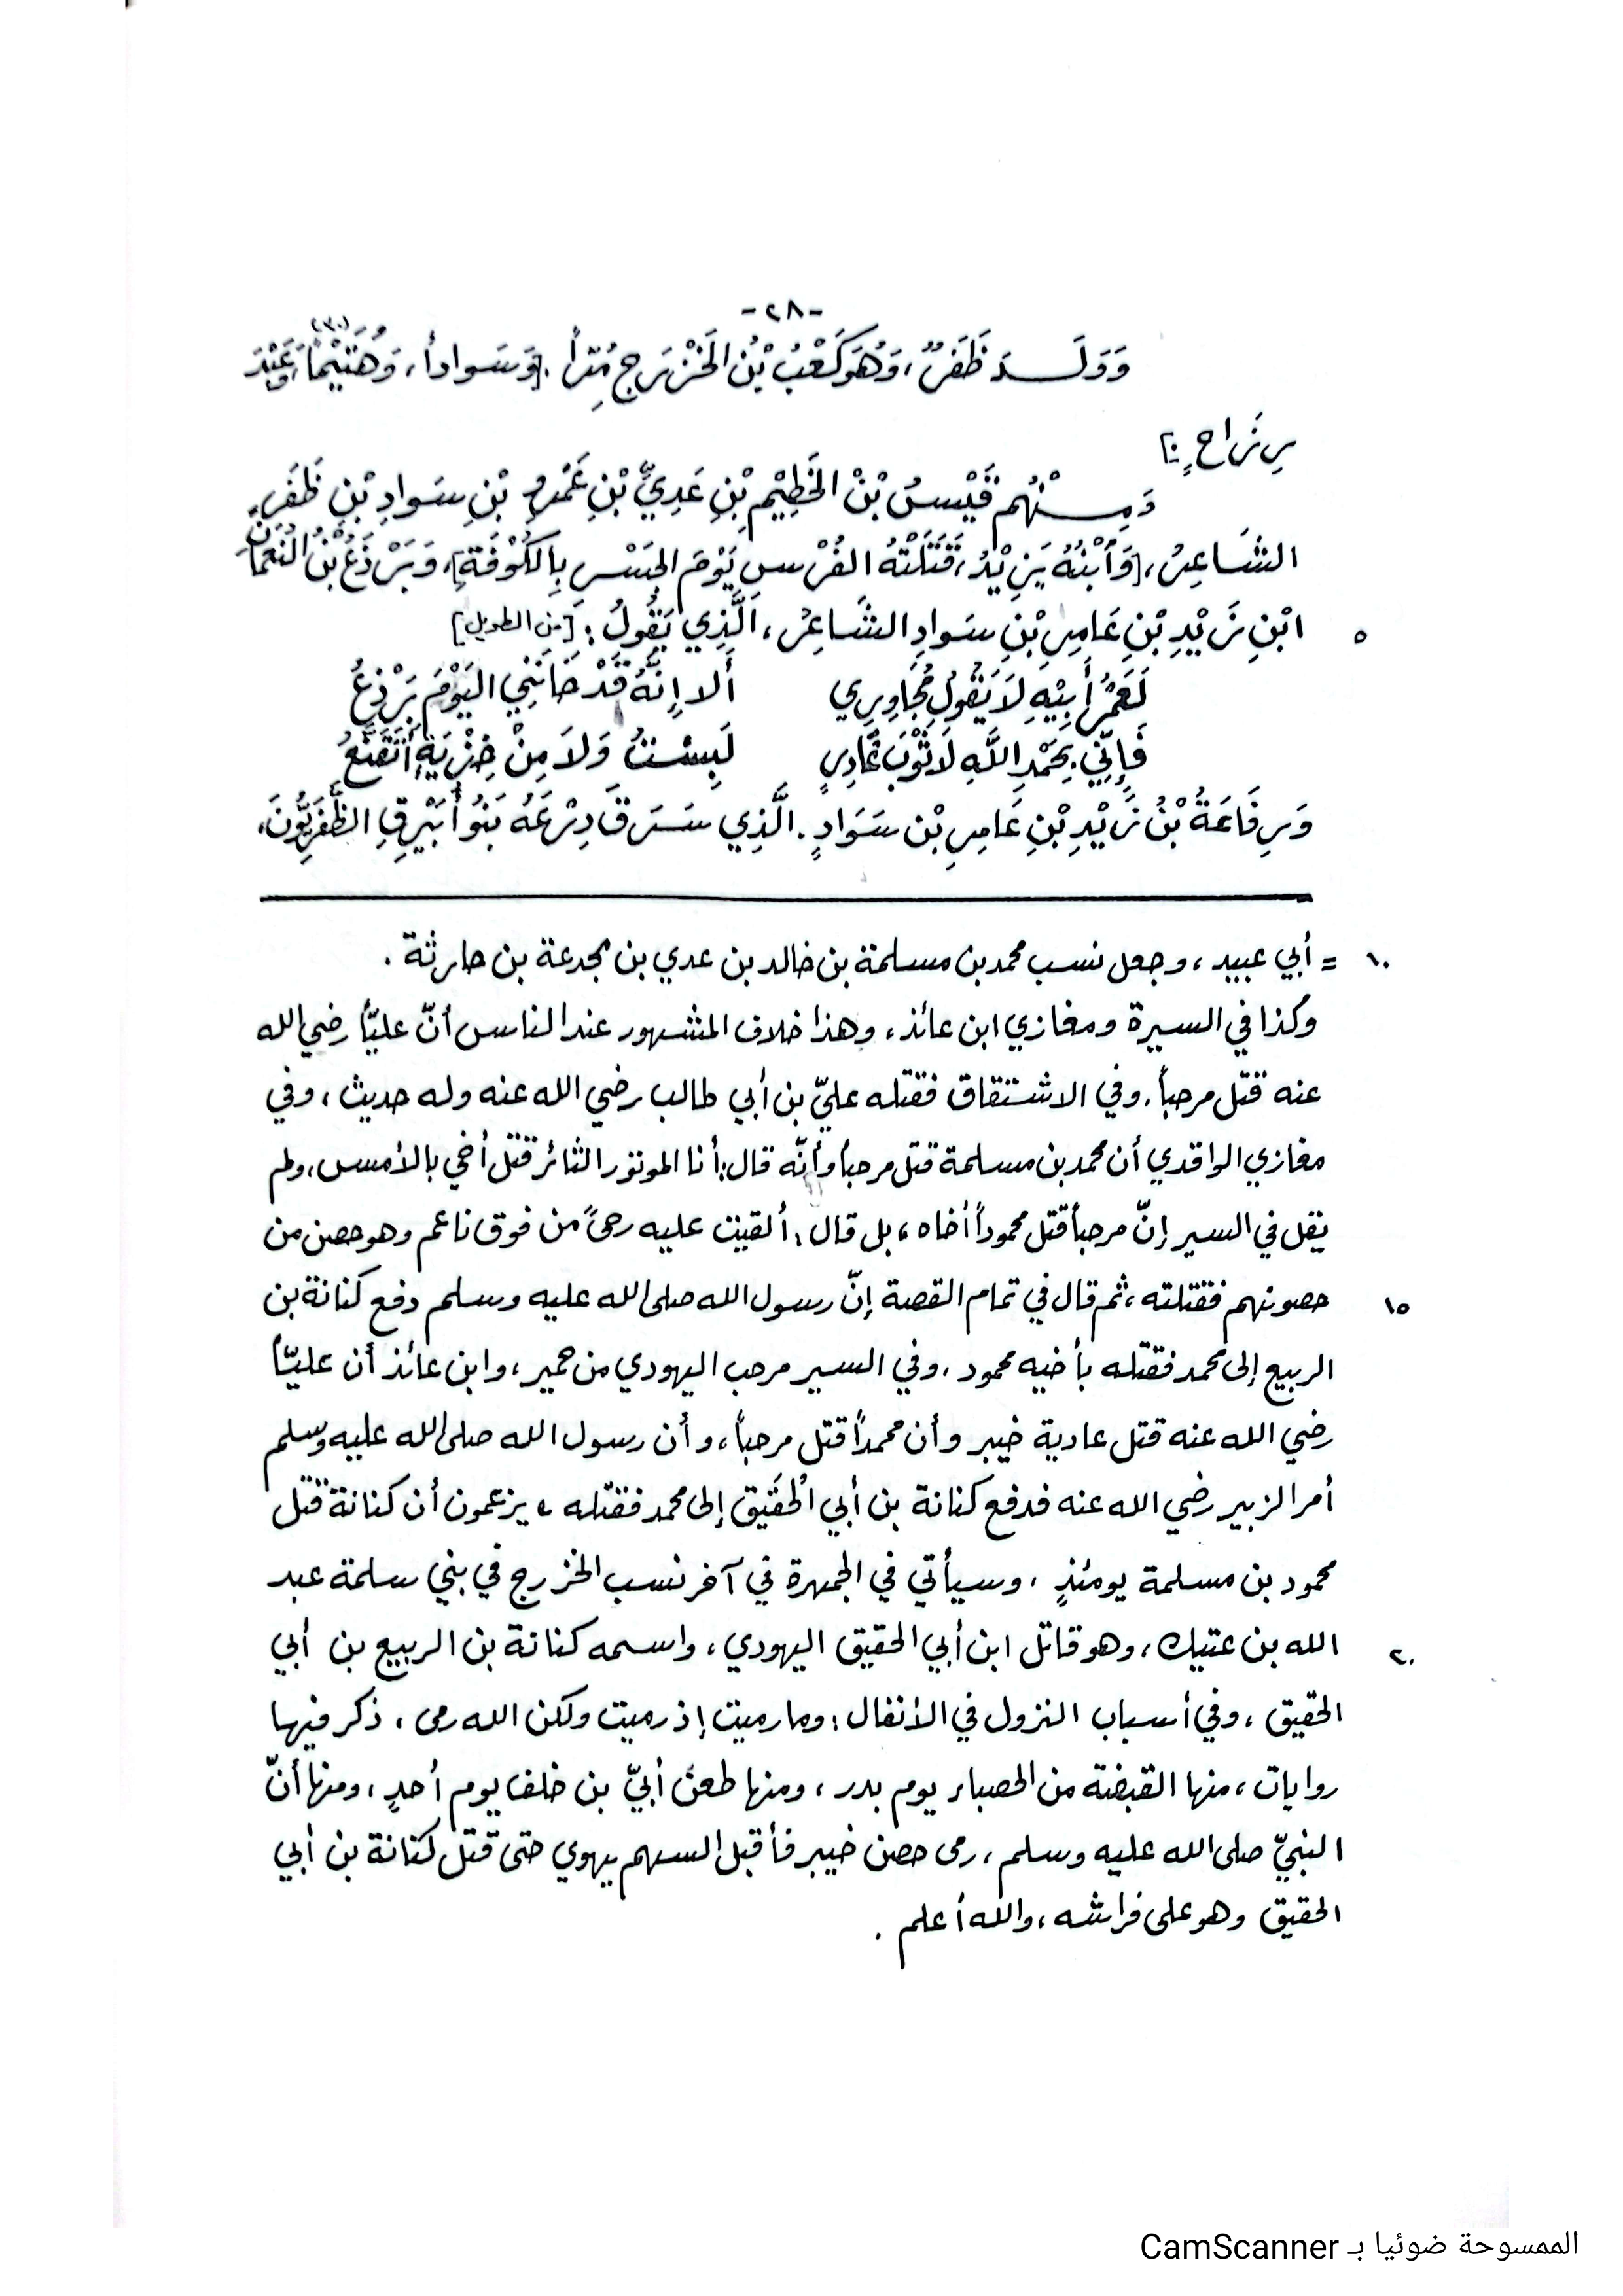 -٢٨-
وَوَلَـــدَ ظَفَرٌ، وَهُوَ كَعْبُ بْنُ الخَزْرَجِ مُرّاً. [وَسَواداً، وَهُنَيْماً، وَعَبْدَ (٣٠)
رِزَاحٍ].
وَمِـــنْهُم قَيْسُ بْنُ الخَطِيْمِ بْنِ عَدِيِّ بْنِ عَمْرِو بْنِ سَوادِ بْنِ ظَفَرٍ،
الشَاعِرُ، [وَٱبْنُهُ يَزِيْدُ، قَتَلَتْهُ الفُرْسِ يَوْمَ الجَسْرِ بِالكُوْفَةِ]، وَبَرْذَعُ بْنُ النُعْمَانِ
ابْنِ زَيْدِ بْنِ عَامِرِ بْنِ سَوادِ الشَاعِرُ، الَّذِي يَقُولُ: [من الطويل] ٥
لَعَمْرُ أَبِيْهِ لَا يَقُولُ مُجَاوِرِي أَلا إِنَّهُ قَدْ خَانَنِي اليَوْمَ بَرْذَعُ
فَإِنِّي بِحَمْدِ اللَّهِ لَا ثَوْبَ غَادِرٍ لَبِسْتُ وَلَا مِنْ خِزْيَةٍ أَتَقَنَّعُ
وَرِفَاعَةُ بْنُ زَيْدِ بْنِ عَامِرِ بْنِ سَوَادٍ. الَّذِي سَرَقَ دِرْعَهُ بَنُو أُبَيْرِقِ الظَّفَرِيُّونَ،
١٠ = أبي عبيد، وجعل نسب محمد بن مسلمة بن خالد بن عدي بن مجدعة بن حارثة.
وكذا في السيرة ومغازي ابن عائذ، وهذا خلاف المشهور عند الناس أنّ عليّاً رضي الله
عنه قتل مرحباً. وفي الاشتقاق فقتله عليّ بن أبي طالب رضي الله عنه وله حديث، وفي
مغازي الواقدي أن محمد بن مسلمة قتل مرحباً وأنّه قال: أنا الموتور الثائر قتل أخي بالأمس، ولم
يقل في السير إنّ مرحباً قتل محموداً أخاه، بل قال: ألقيت عليه رحىً من فوق ناعم وهو حصن من
حصونهم فقتلته، ثم قال في تمام القصة إنّ رسول الله صلى الله عليه وسلم دفع كنانة بن ١٥
الربيع إلى محمد فقتله بأخيه محمود. وفي السير مرحب اليهودي من حمير، وابن عائذ أن عليّاً
رضي الله عنه قتل عادية خيبر وأن محمداً قتل مرحباً، وأن رسول الله صلى الله عليه وسلم
أمر الزبير رضي الله عنه فدفع كنانة بن أبي الحُقَيق إلى محمد فقتله، يزعمون أن كنانة قتل
محمود بن مسلمة يومئذٍ، وسيأتي في الجمهرة في آخر نسب الخزرج في بني سلمة عبد
الله بن عتيك، وهو قاتل ابن أبي الحقيق اليهودي، واسمه كنانة بن الربيع بن أبي ٢٠
الحقيق، وفي أسباب النزول في الأنفال: وما رميت إذ رميت ولكن الله رمى، ذكر فيها
روايات، منها القبضة من الحصباء يوم بدر، ومنها طعن أبيّ بن خلف يوم أحدٍ، ومنها أنّ
النبيّ صلى الله عليه وسلم، رمى حصن خيبر فأقبل السهم يهوي حتى قتل كنانة بن أبي
الحقيق وهو على فراشه، والله أعلم.
الممسوحة ضوئيا بـ CamScanner